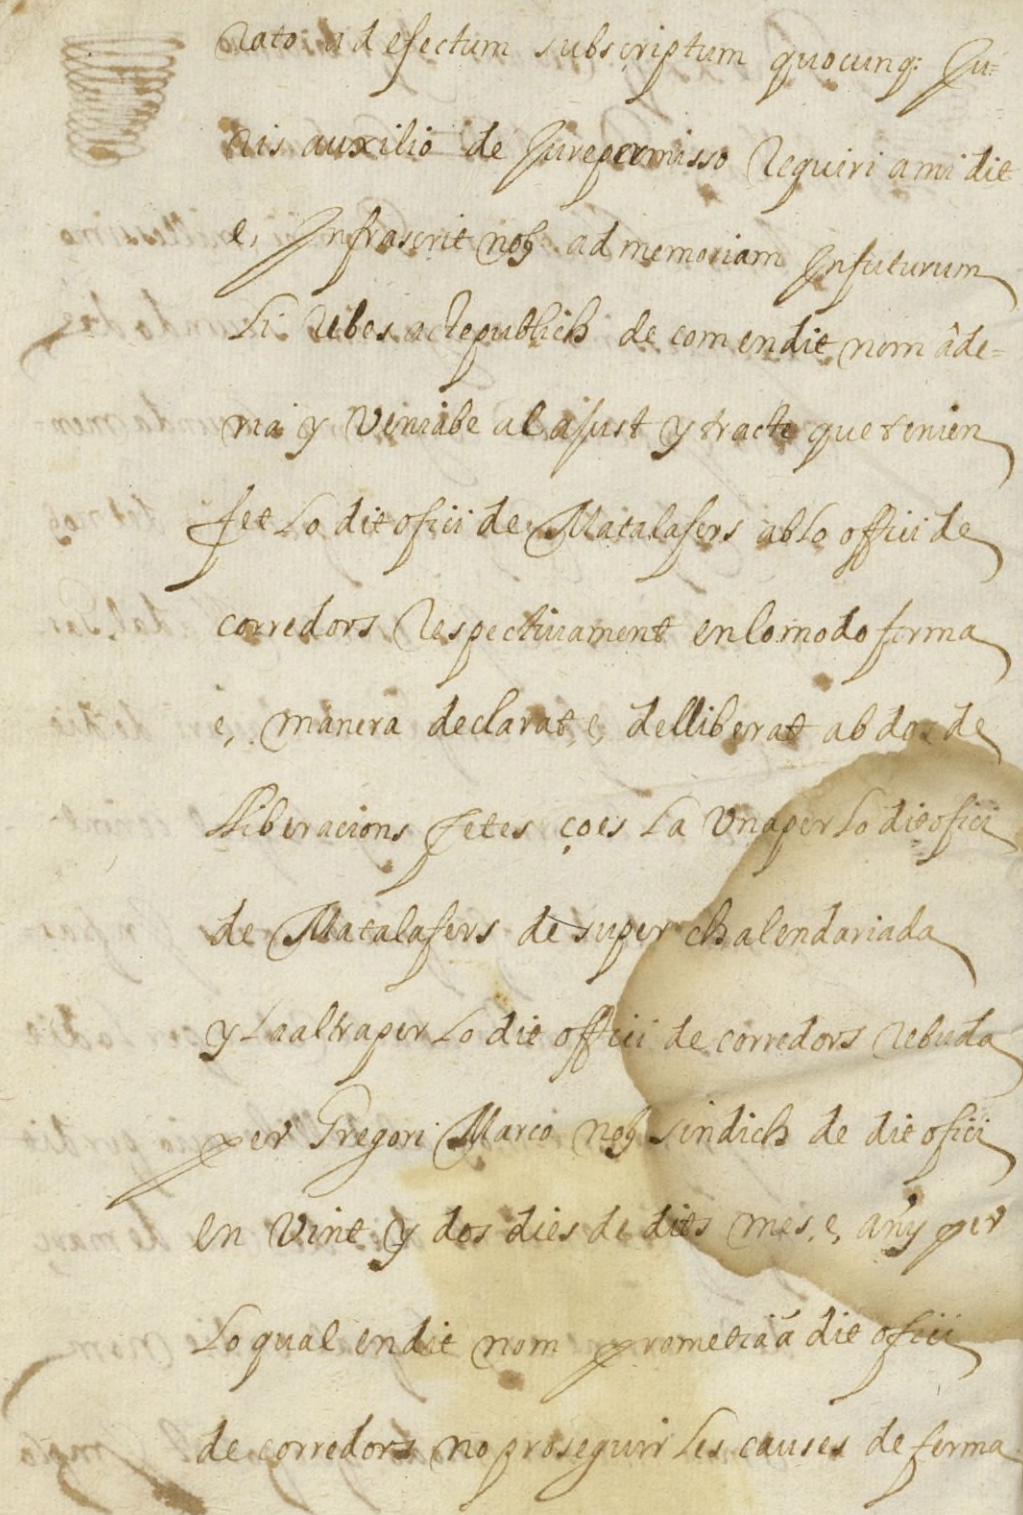 rato ad efectum subscriptum quocunq: Ju=
ris auxilio de Jure permisso Requiri a mi dit
e, Infrascrit noth ad memoriam In futurum
li Rebes acte publich de com en dit nom âde=
ria y Veniabe al ajust y tracte que tenien
fet Lo dit ofici de Matalafers ab Lo offici de
corredors Respectivament en lo modo forma
e, manera declarat, e, delliberat ab dos de
lliberacions fetes ço es La Una per Lo dit ofici
de Matalafers de super chalendariada
y La altra per Lo dit offici de corredors rebuda
per Gregori Marco noth sindich de dit ofici
en Vint y dos dies de dits mes, e, añy per
Lo qual en dit nom prometia â dit ofici
de corredors no proseguir Les causes de ferma